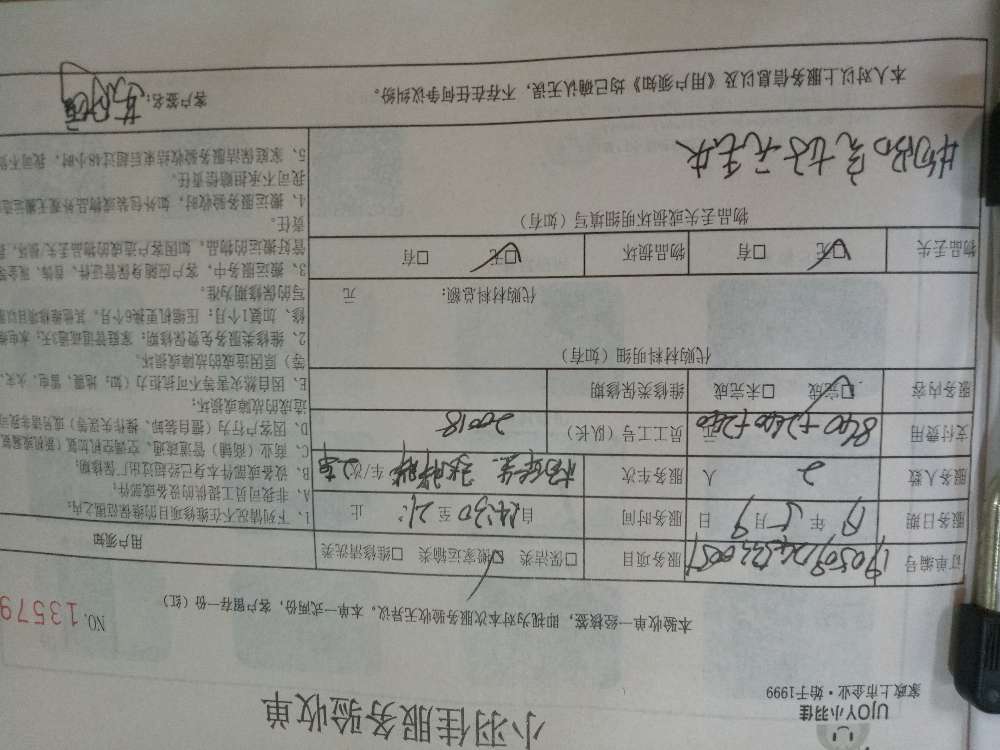 UJOY小羽佳
家政上市企业·始于1999
小羽佳服务验收单
本验收单一经核签，即视为对本次服务验收无异议，本单一式两份，客户留存一份（红）
NO. 13579
订单编号
服务项目 □保洁类 □搬家运输类 □维修清洗类
服务日期 19 年 5 月 9 日
服务时间 自 14:30 至 21: 止
服务人数 2 人
服务车次 车/次/
支付费用 840+240+240 元
员工工号（队长） 20018
服务内容 □完成 □未完成
维修类保修期
代购材料明细（如有）
代购材料总额： 元
物品丢失 □无 □有
物品损坏 □无 □有
物品丢失或损坏明细填写（如有）
物品完好无丢失
用户须知
1、下列情况不在维修项目的维保范围之内：
A、非我司员工提供的设备或部件；
B、设备或部件本身已经超过出厂保修期；
C、商业（商铺）管道疏通、空调空机加氟（家机
D、因客户行为（擅自装卸、操作失误等）或另请非我司
造成的故障或损坏；
E、因自然灾害等不可抗拒力（如：地震、雷电、火灾、
等）原因造成的故障或损坏。
2、维修类服务免费保修期：家庭管道疏通3天；水电维
修、加氟1个月；压缩机更换6个月，其他维修项目以
写的保修期为准。
3、搬运服务中，客户应随身保管证件、首饰、现金等
管好搬运的物品，如因客户造成的物品丢失/损坏，
责任。
4、搬运服务验收时，如外包装或物品外观无搬运
我司不承担赔偿责任。
5、家庭保洁服务验收结束后超过48小时，我司不
本人对以上服务信息以及《用户须知》均已确认无误，不存在任何争议纠纷。
客户签名：